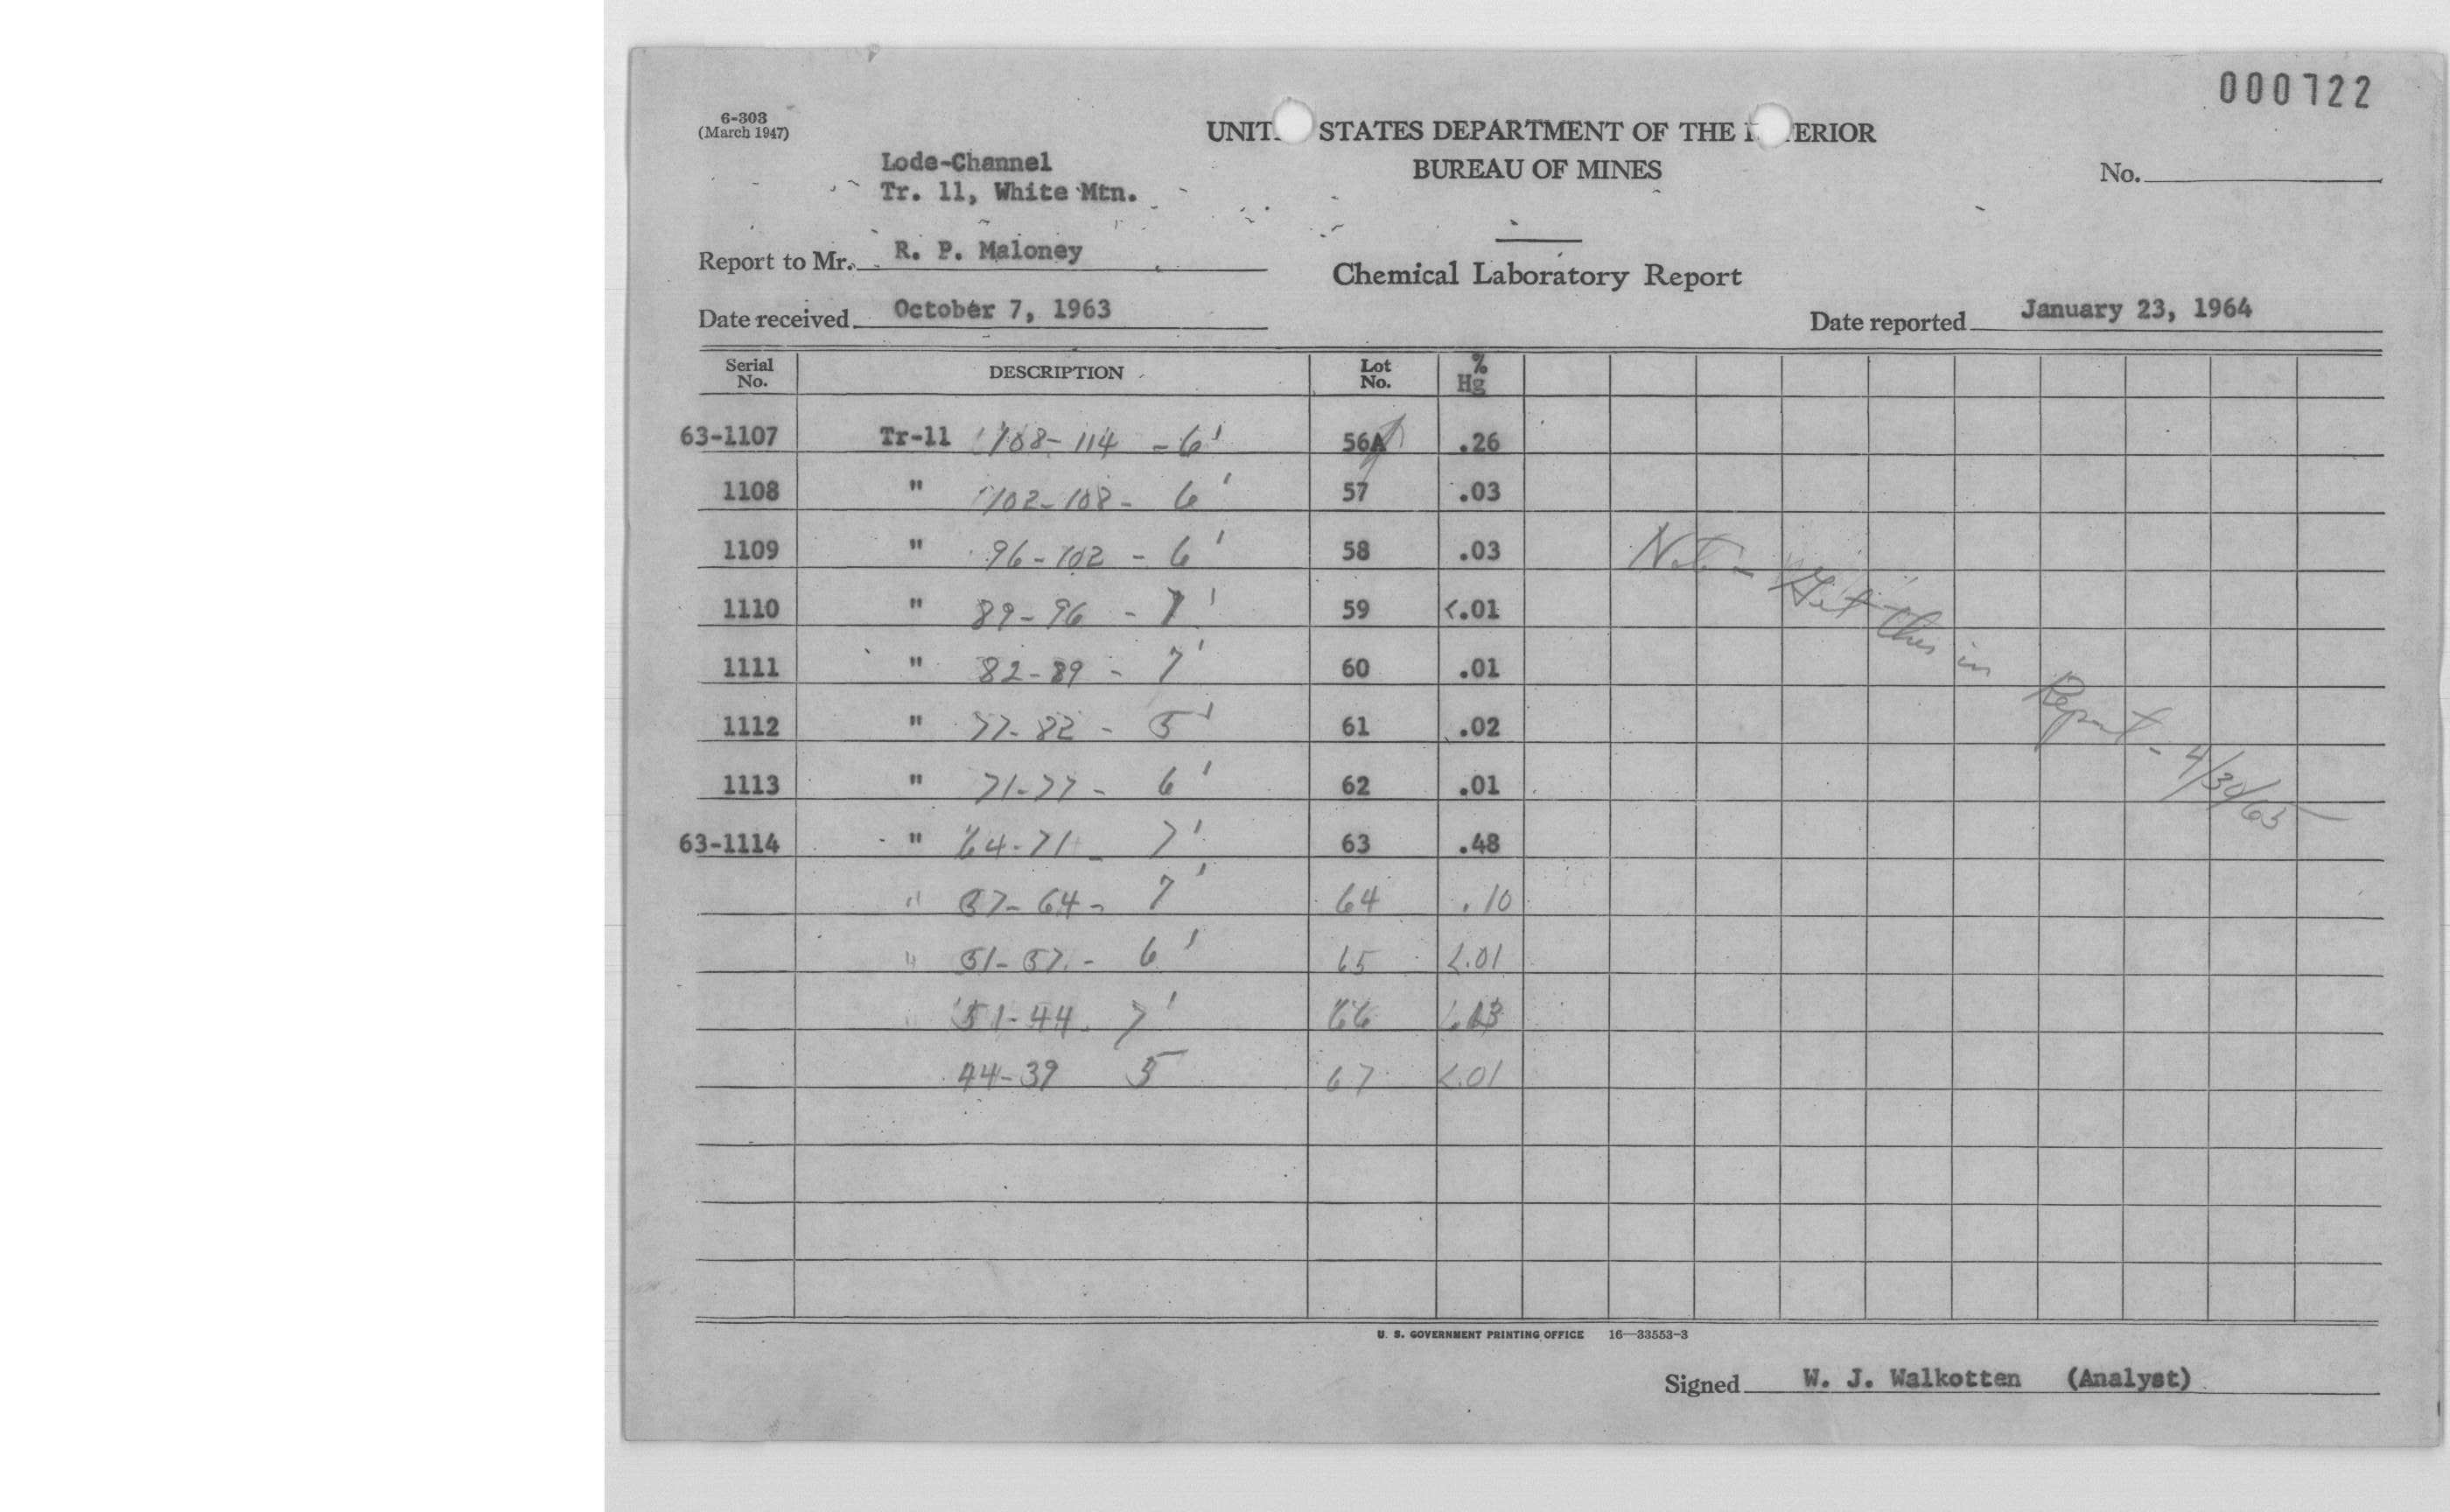 000722
6-303
(March 1947)
UNIT STATES DEPARTMENT OF THE I ERIOR
BUREAU OF MINES
No.
Lode-Channel
Tr. 11, White Mtn.
Report to Mr. R. P. Maloney
Chemical Laboratory Report
Date received October 7, 1963
Date reported January 23, 1964
Serial No. DESCRIPTION Lot No. % Hg
63-1107 Tr-11 108-114 - 6' 56A .26
1108 " 102-108- 6' 57 .03
1109 " 96-102 - 6' 58 .03
1110 " 89-96 - 7' 59 <.01
1111 " 82-89 - 7' 60 .01
1112 " 77-82 - 5' 61 .02
1113 " 71-77- 6' 62 .01
63-1114 " 64-71- 7' 63 .48
" 57-64- 7' 64 .10
" 51-57- 6' 65 <.01
" 51-44- 7' 66
44-39 5 67 <.01
Note - Get this in Report - 4/30/65
U. S. GOVERNMENT PRINTING OFFICE 16—33553-3
Signed W. J. Walkotten (Analyst)